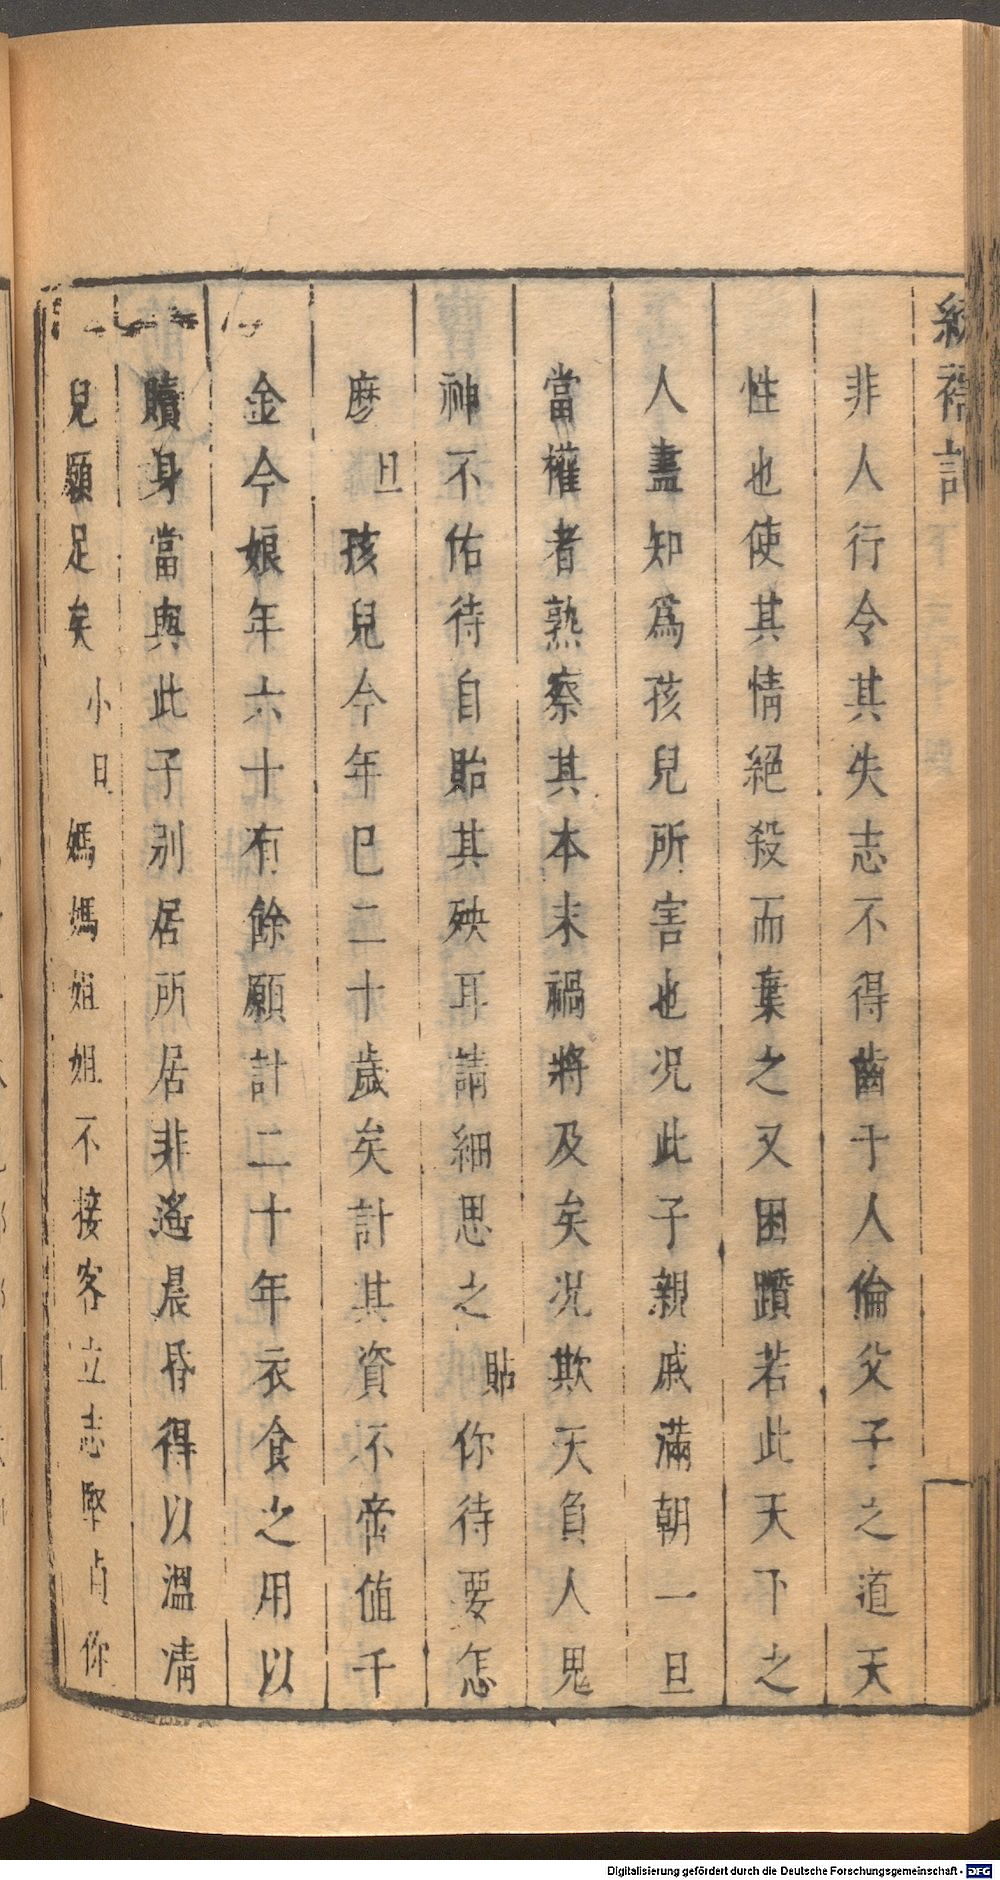 繡襦記
非人行令其失志不得齒于人倫父子之道天
性也使其情絕殺而棄之又困躓若此天下之
人盡知爲孩兒所害也况此子親戚滿朝一旦
當權者熟察其本末禍將及矣况欺天負人鬼
神不佑待自貽其殃耳請細思之 貼 你待要怎
麽 旦 孩兒今年巳二十歲矣計其資不啻值千
金今娘年六十有餘願計二十年衣食之用以
贖身當與此子別居所居非遙晨昏得以溫凊
兒願足矣 小旦 媽媽姐姐不接客立志堅貞你
Digitalisierung gefördert durch die Deutsche Forschungsgemeinschaft - DFG